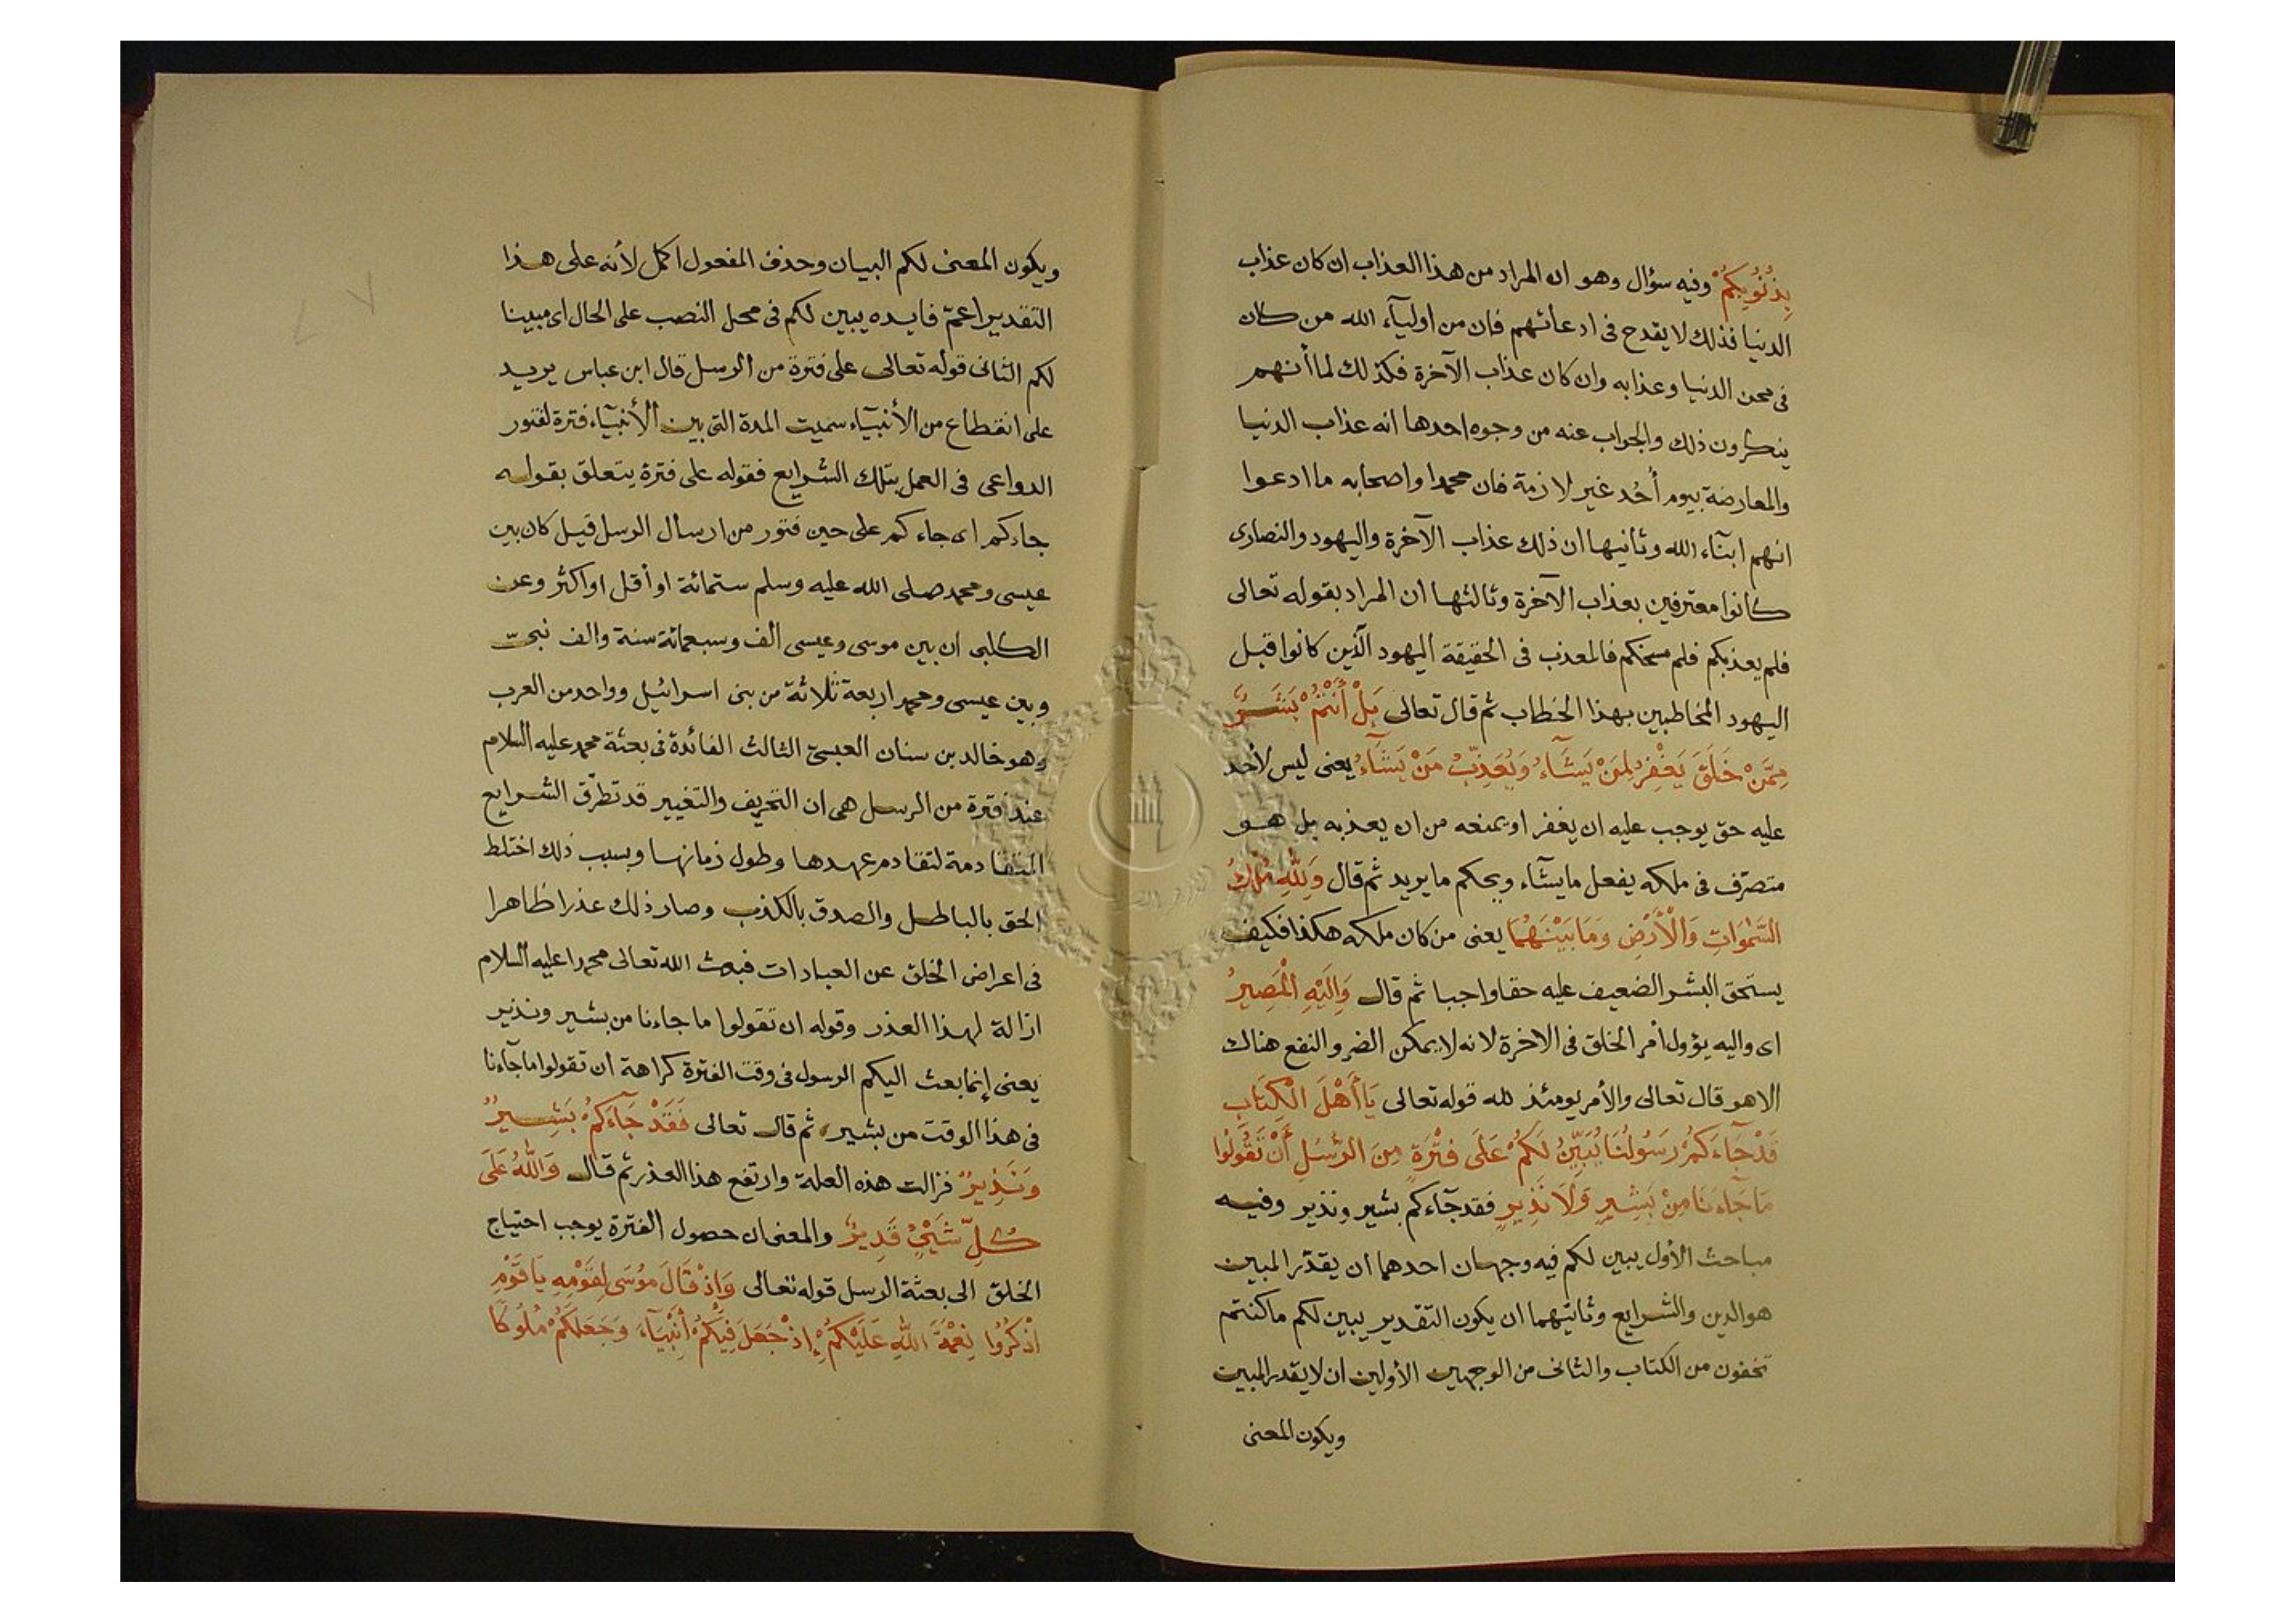 بِذُنُوبِكُمْ وفيه سؤال وهو ان المراد من هذا العذاب ان كان عذاب
الدنيا فذلك لا يقدح فى ادعائهم فان من اوليآء الله من كان
فى محن الدنيا وعذابه وان كان عذاب الآخرة فكذلك لما أنهم
ينكرون ذلك والجواب عنه من وجوه احدها انه عذاب الدنيا
والمعارضة بيوم أُحُد غير لازمة فان محمدا واصحابه ما ادعوا
انهم ابنآء الله وثانيها ان ذلك عذاب الآخرة واليهود والنصارى
كانوا معترفين بعذاب الآخرة وثالثها ان المراد بقوله تعالى
فلم يعذبكم فلم مسخكم فالمعذب فى الحقيقة اليهود الّذين كانوا قبل
اليهود المخاطبين بهذا الخطاب ثم قال تعالى بَلْ أَنْتُمْ بَشَرٌ
مِمَّنْ خَلَقَ يَغْفِرُ لِمَنْ يَشَآءُ وَيُعَذِّبُ مَنْ يَشَآءُ يعنى ليس لأحد
عليه حق يوجب عليه ان يغفر او يمنعه من ان يعذبه بل هو
متصرّف فى ملكه يفعل ما يشآء ويحكم ما يريد ثم قال وَلِلّٰهِ مُلْكُ
السَّمٰوَاتِ وَالْأَرْضِ وَمَا بَيْنَهُمَا يعنى من كان ملكه هكذا فكيف
يستحق البشر الضعيف عليه حقا واجبا ثم قال وَاِلَيْهِ الْمَصِيرُ
اى واليه يؤول أمر الخلق فى الاخرة لانه لا يمكن الضر والنفع هناك
الا هو قال تعالى والأمر يومئذ لله قوله تعالى يَا أَهْلَ الْكِتَابِ
قَدْ جَآءَكُمْ رَسُولُنَا يُبَيِّنُ لَكُمْ عَلَى فَتْرَةٍ مِنَ الرُّسُلِ أَنْ تَقُولُوا
مَا جَآءَنَا مِنْ بَشِيرٍ وَلَا نَذِيرٍ فقد جآءكم بشير ونذير وفيه
مباحث الأول يبين لكم فيه وجهان احدهما ان يقدّر المبين
هو الدين والشرايع وثانيهما ان يكون التقدير يبين لكم ما كنتم
تخفون من الكتاب والثانى من الوجهين الأولين ان لا يقدر المبين
ويكون المعنى
ويكون المعنى لكم البيان وحذف المفعول اكمل لأنه على هذا
التقدير اعمّ فايده يبين لكم فى محل النصب على الحال اى مبينا
لكم الثانى قوله تعالى على فترة من الرسل قال ابن عباس يريد
على انقطاع من الأنبيآء سميت المدة التى بين الأنبيآء فترة لفتور
الدواعى فى العمل بتلك الشرايع فقوله على فترة يتعلق بقوله
جاءكم اى جاءكم على حين فتور من ارسال الرسل قيل كان بين
عيسى ومحمد صلى الله عليه وسلم ستمائة او أقل او اكثر وعن
الكلبى ان بين موسى وعيسى الف وسبعمائة سنة والف نبىّ
وبين عيسى ومحمد اربعة ثلاثة من بنى اسرائيل وواحد من العرب
وهو خالد بن سنان العبسىّ الثالث الفائدة فى بعثة محمد عليه السلام
عند فترة من الرسل هى ان التحريف والتغيير قد تطرّق الشرايع
المتقادمة لتقادم عهدها وطول زمانها وبسبب ذلك اختلط
الحق بالباطل والصدق بالكذب وصار ذلك عذرا ظاهرا
فى اعراض الخلق عن العبادات فبعث الله تعالى محمدا عليه السلام
ازالة لهذا العذر وقوله ان تقولوا ما جاءنا من بشير ونذير
يعنى إنما بعث اليكم الرسول فى وقت الفترة كراهة ان تقولوا ما جآءنا
فى هذا الوقت من بشير ثم قال تعالى فَقَدْ جَآءَكُمْ بَشِيرٌ
وَنَذِيرٌ فزالت هذه العلة وارتفع هذا العذر ثم قال وَاللّٰهُ عَلَى
كُلِّ شَيْءٍ قَدِيرٌ والمعنى ان حصول الفترة يوجب احتياج
الخلق الى بعثة الرسل قوله تعالى وَإِذْ قَالَ مُوسَى لِقَوْمِهِ يَا قَوْمِ
اذْكُرُوا نِعْمَةَ اللّٰهِ عَلَيْكُمْ إِذْ جَعَلَ فِيكُمْ أَنْبِيَآءَ وَجَعَلَكُمْ مُلُوكًا